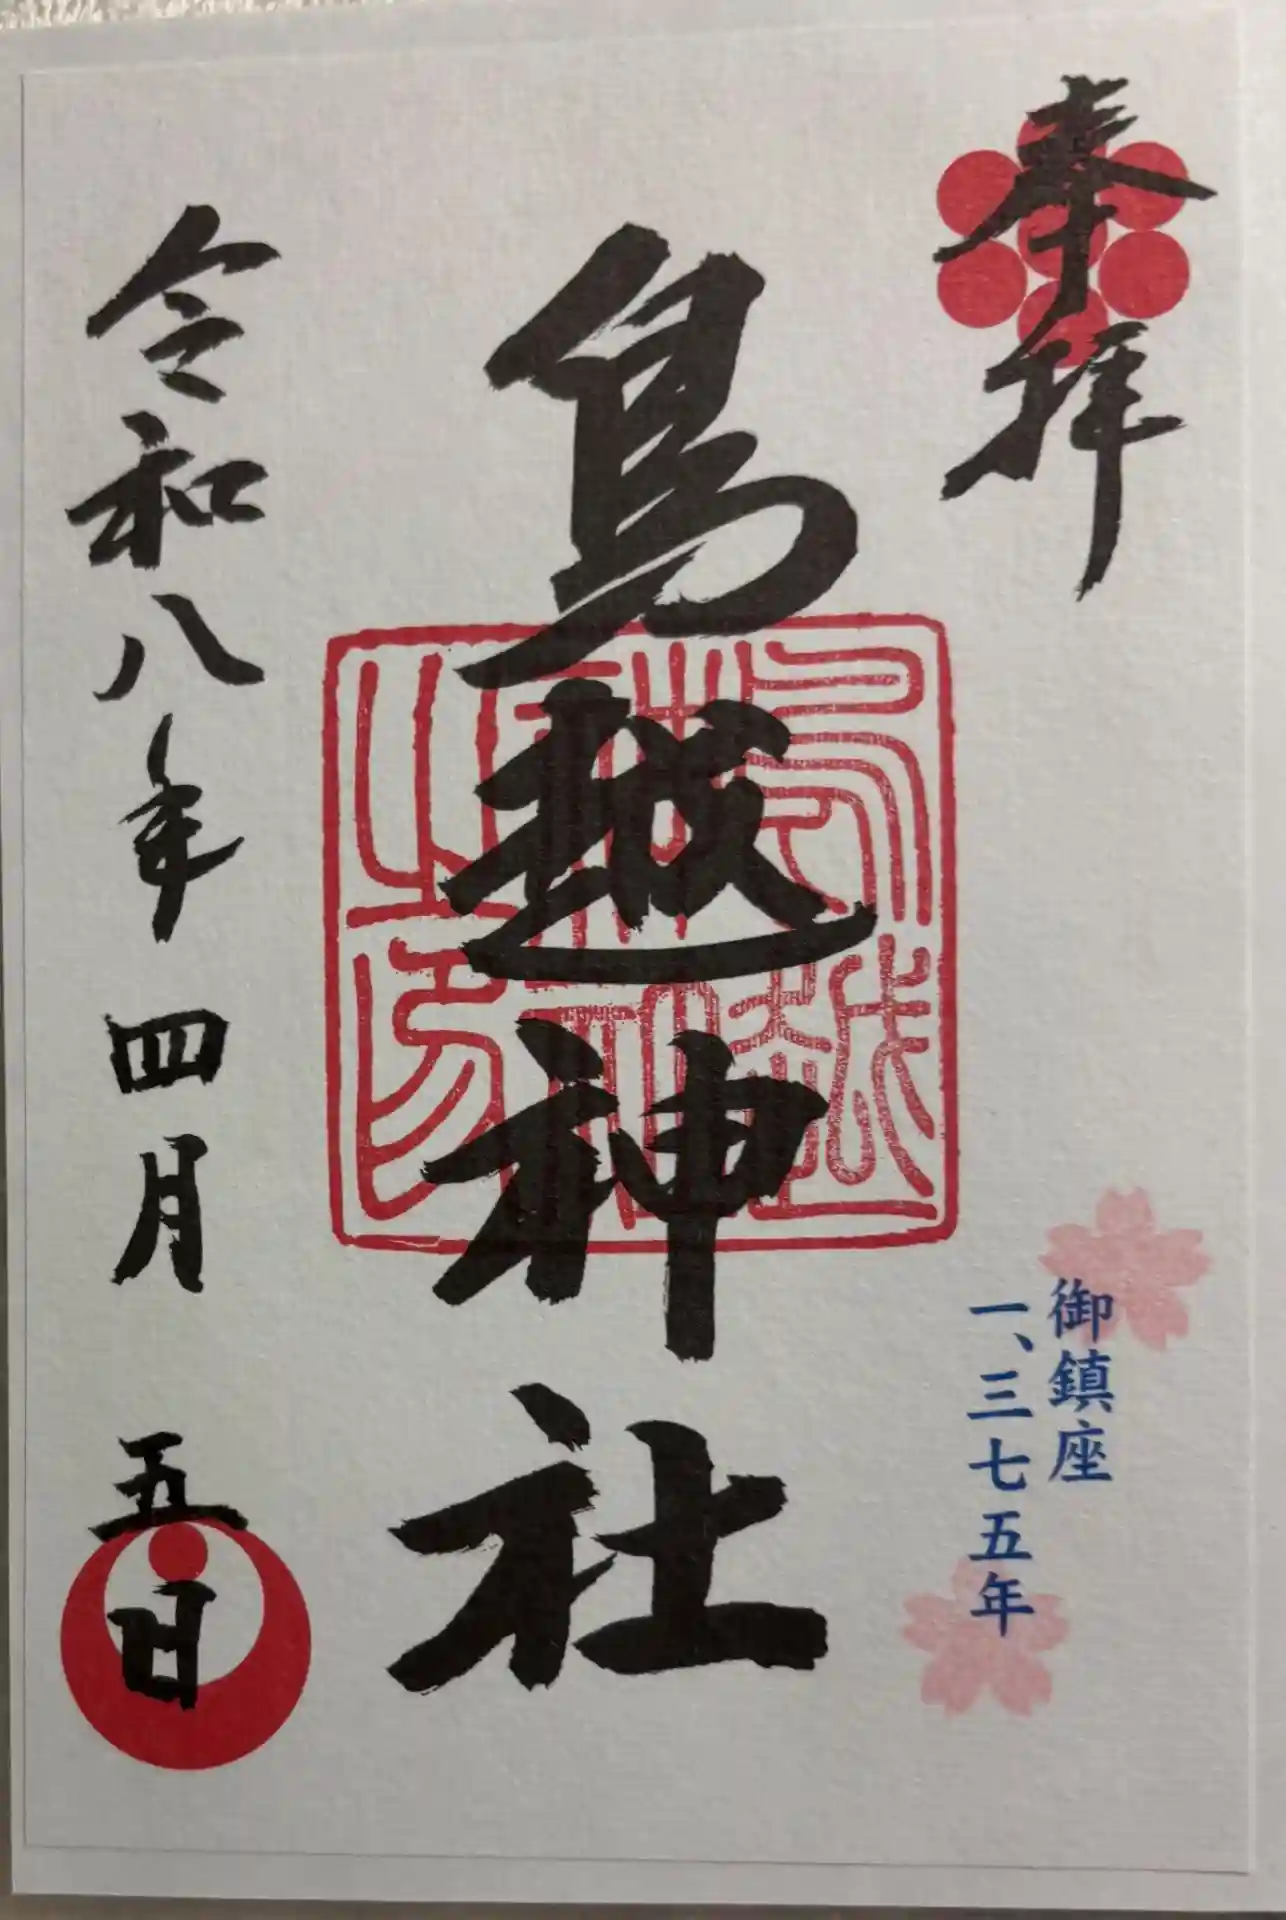 奉拝
御鎮座
一、三七五年
鳥越神社
鳥越神社之印
令和八年四月五日